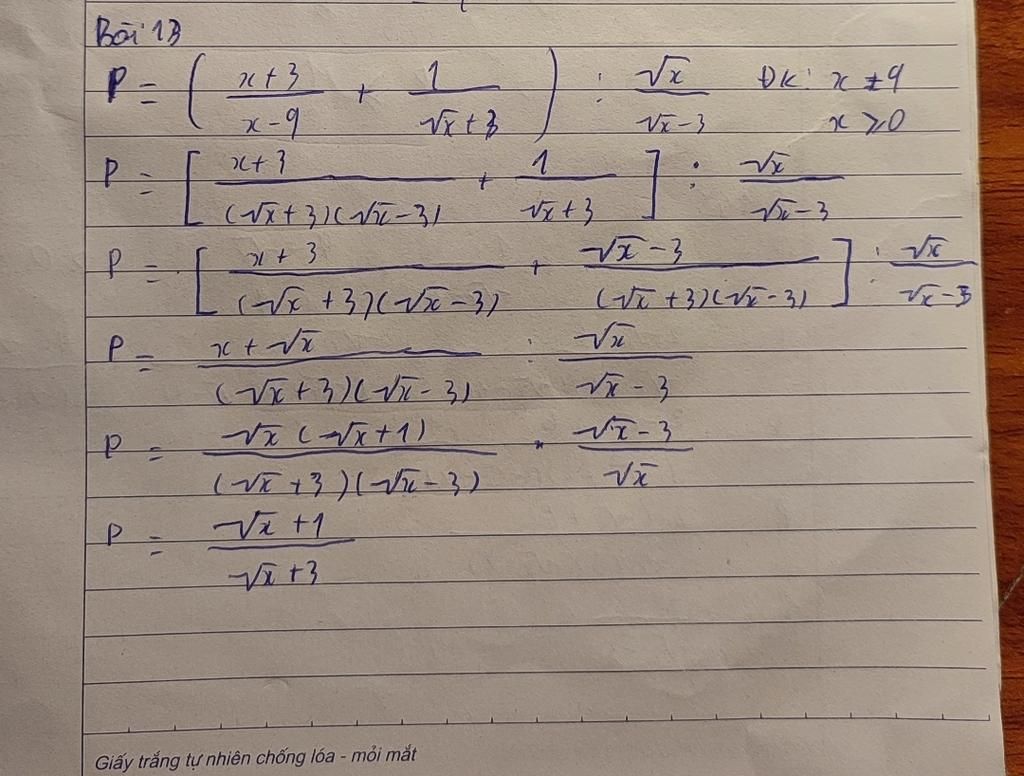 Bài 13
P = ( (x+3)/(x-9) + 1/(√x+3) ) : √x/(√x-3) ĐK: x ≠ 9
x ≥ 0
P = [ (x+3)/((√x+3)(√x-3)) + 1/(√x+3) ] : √x/(√x-3)
P = [ (x+3)/((√x+3)(√x-3)) + (√x-3)/((√x+3)(√x-3)) ] : √x/(√x-3)
P = (x+√x)/((√x+3)(√x-3)) : √x/(√x-3)
P = √x(√x+1)/((√x+3)(√x-3)) * (√x-3)/√x
P = (√x+1)/(√x+3)
Giấy trắng tự nhiên chống lóa - mỏi mắt